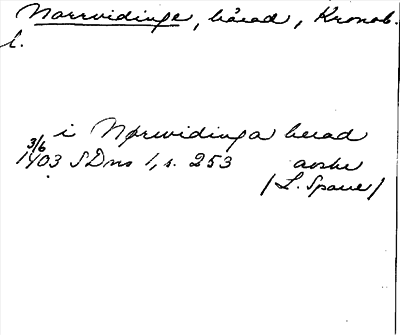 Norrvidinge, härad, Kronob.
l.
i Norwidinga herad
3/6
1403 SDns 1, s. 253 avskr
/L. Sparre/